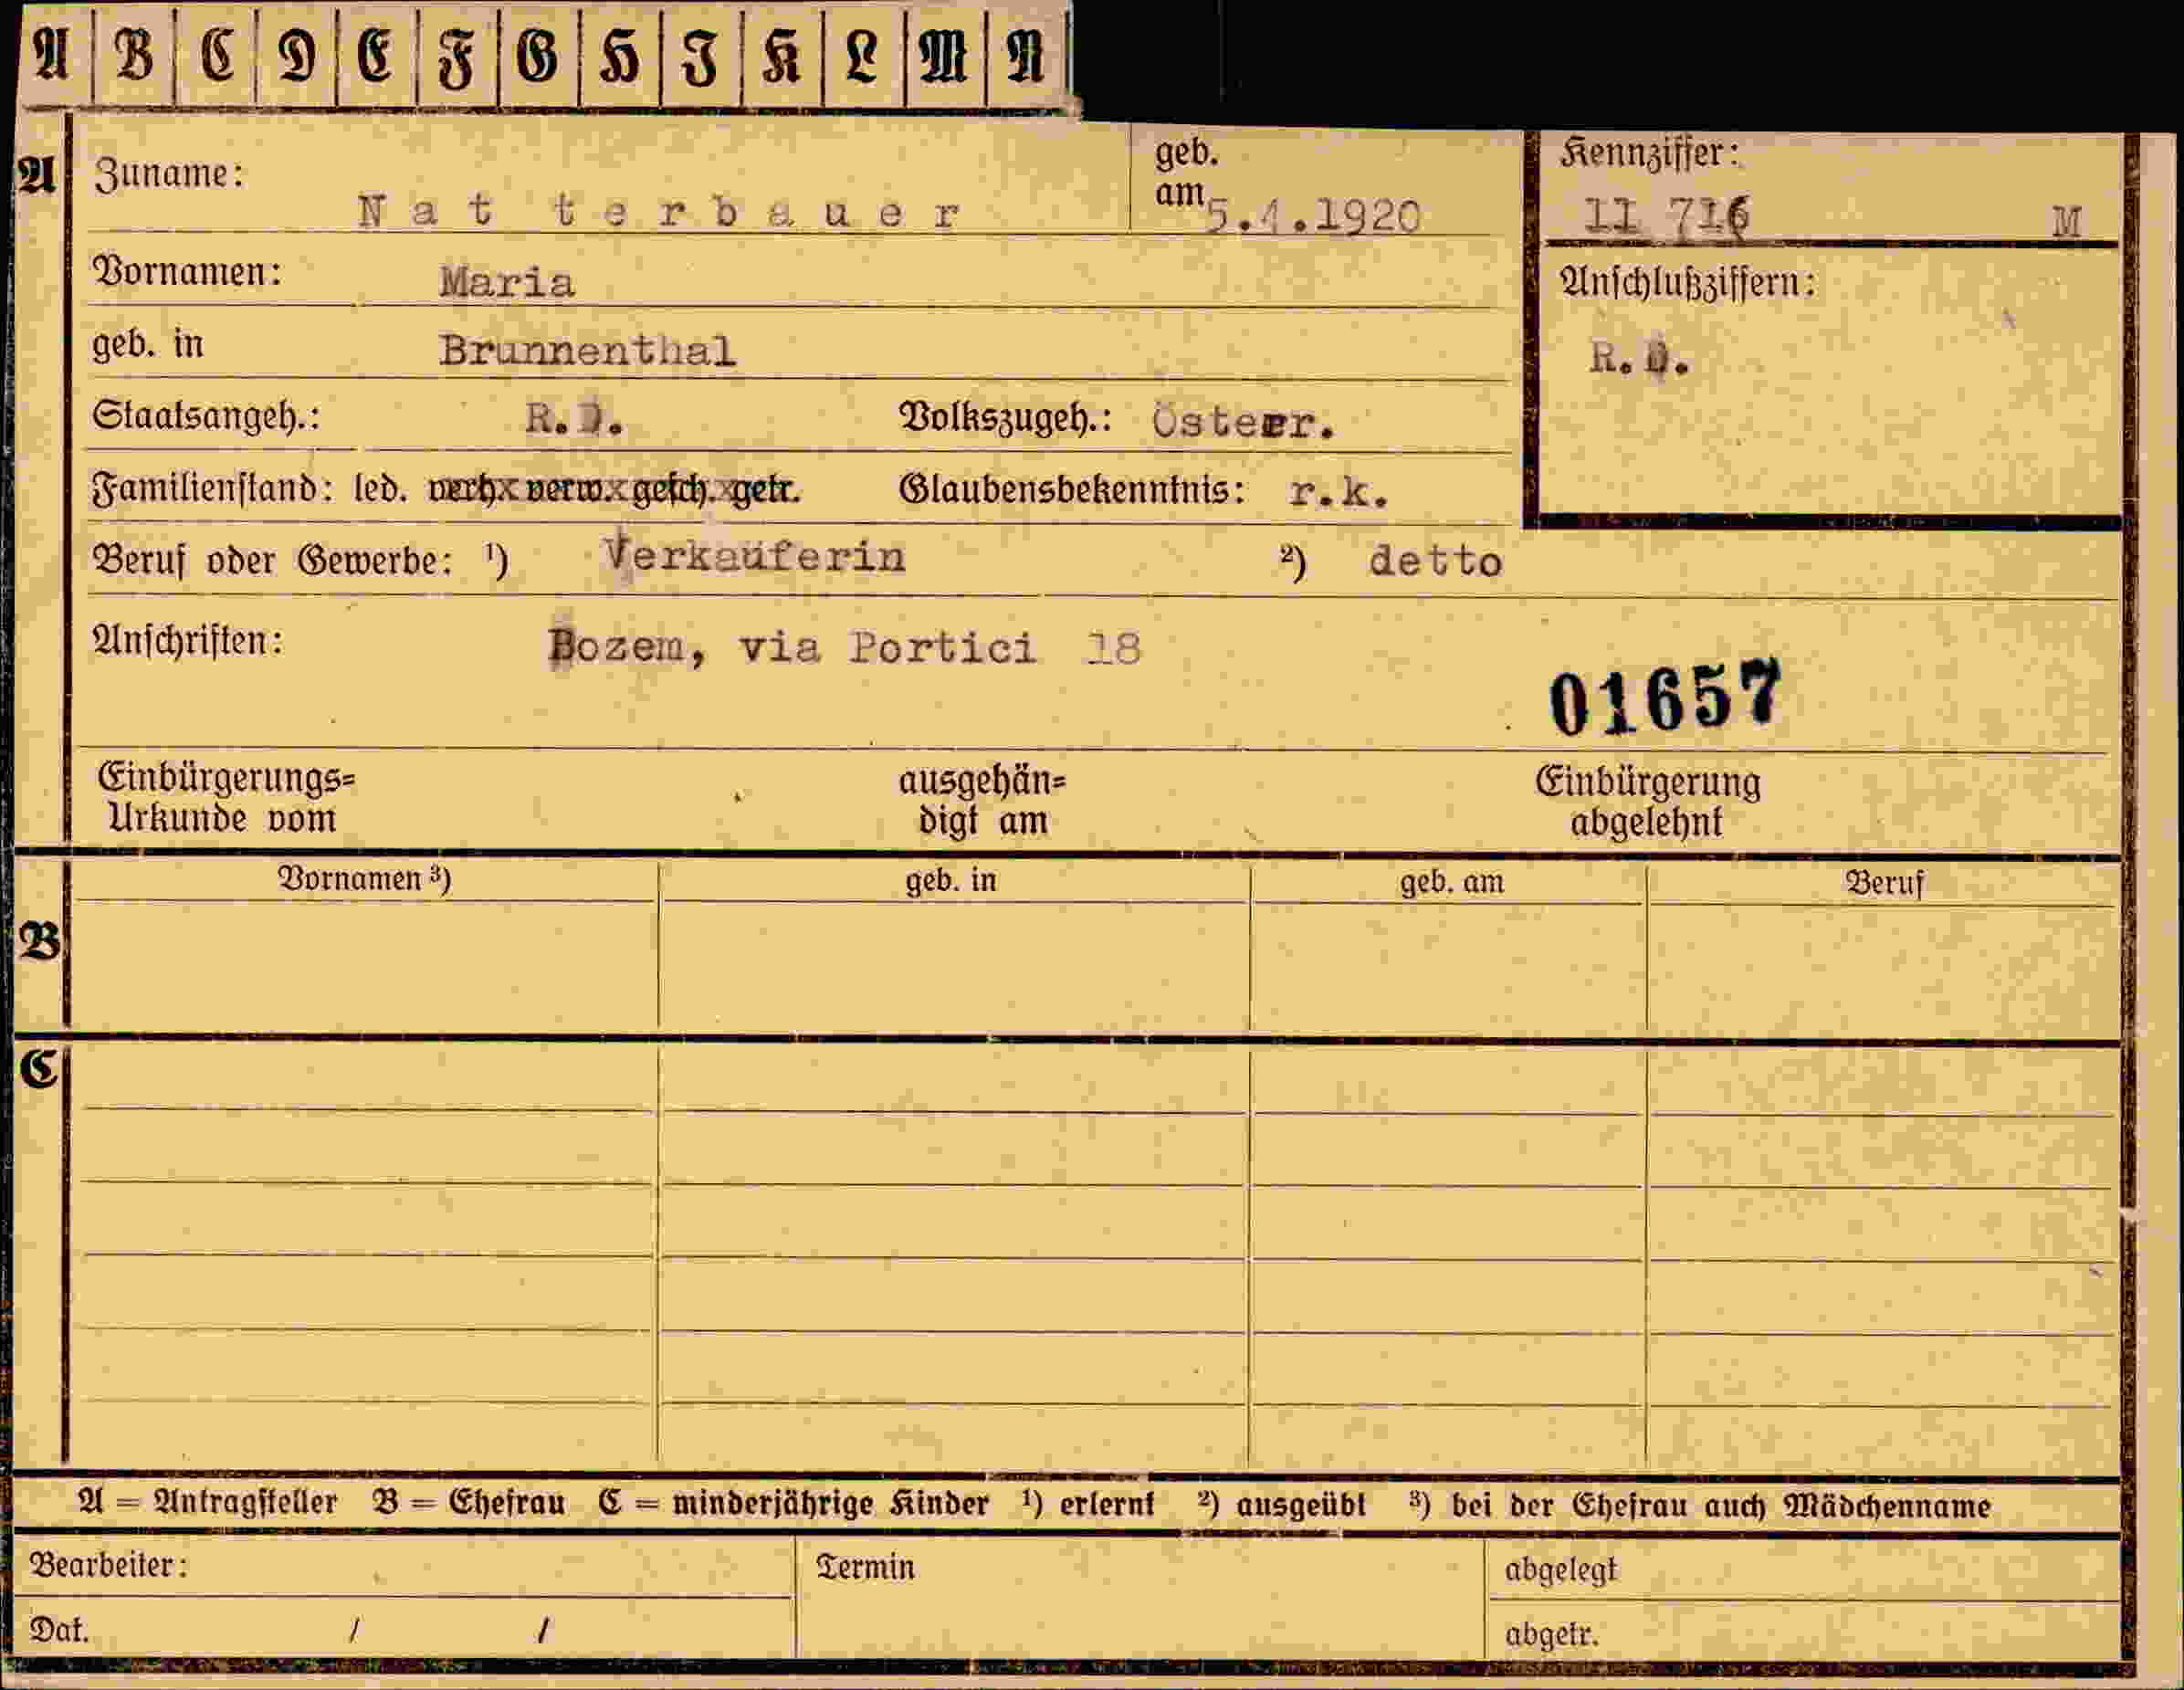 A B C D E F G H I K L M N
A Zuname: Nat terbauer geb. am 5.4.1920 Kennziffer: 11 716 M
Vornamen: Maria Anschlußziffern:
geb. in Brunnenthal R.D.
Staatsangeh.: R.D. Volkszugeh.: Österr.
Familienstand: led. verh. verw. gesch. getr. Glaubensbekenntnis: r.k.
Beruf oder Gewerbe: ¹) Verkäuferin ²) detto
Anschriften: Bozem, via Portici 18
01657
Einbürgerungs= ausgehän= Einbürgerung
Urkunde vom digt am abgelehnt
B Vornamen ³) geb. in geb. am Beruf
C
A = Antragsteller B = Ehefrau C = minderjährige Kinder ¹) erlernt ²) ausgeübt ³) bei der Ehefrau auch Mädchenname
Bearbeiter: Termin abgelegt
Dat. / / abgetr.